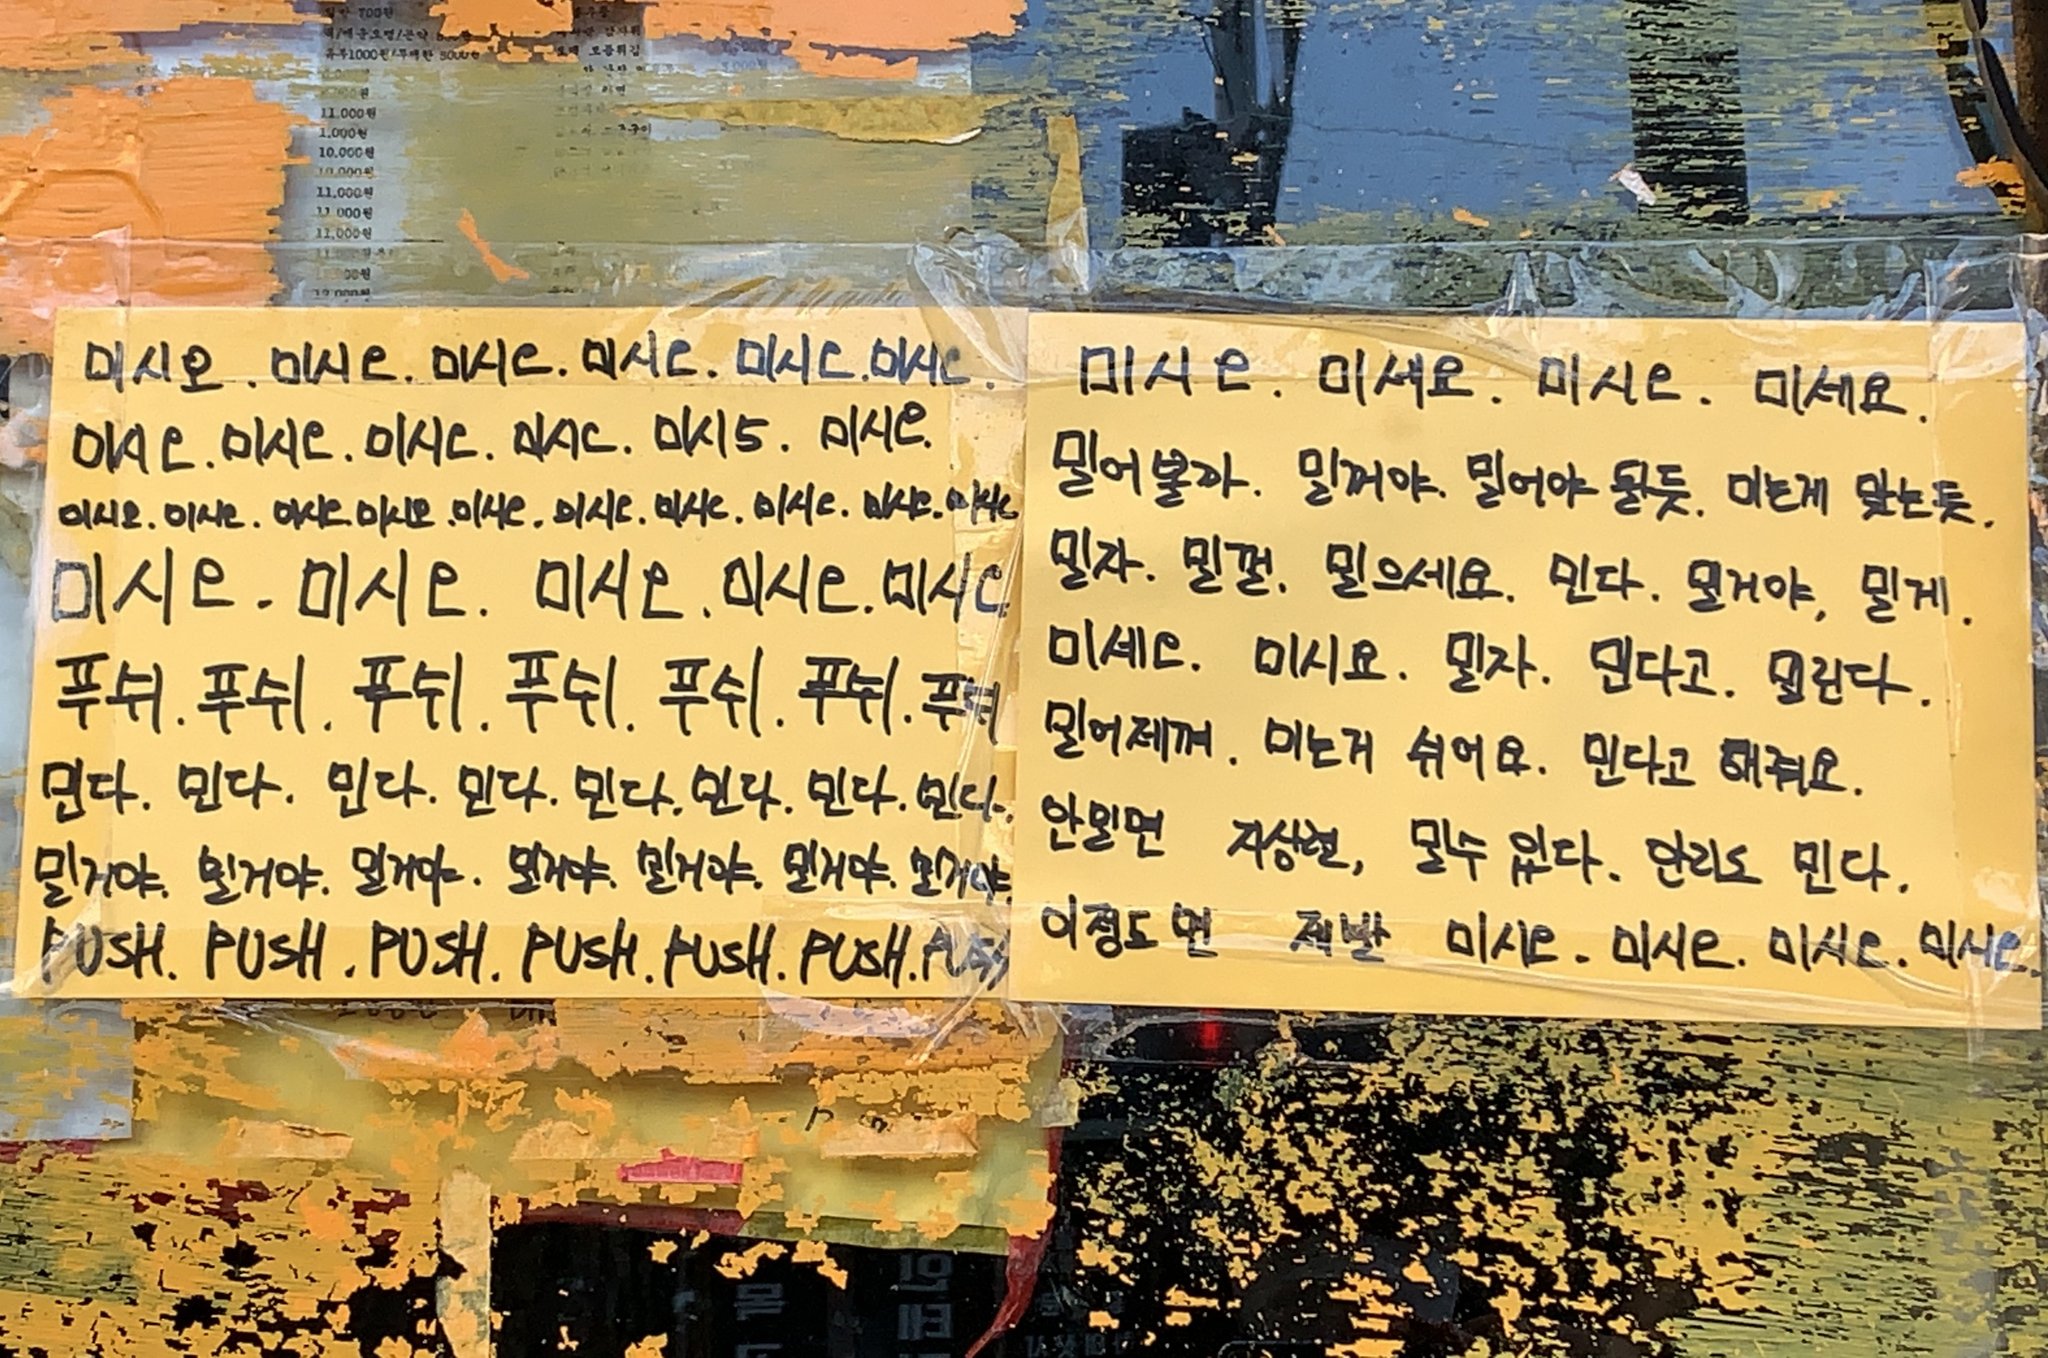 11,000원
1,000원
10,000원
10,000원
11,000원
11,000원
11,000원
미시오. 미시오. 미시오. 미시오. 미시오. 미시오.
미시오. 미시오. 미시오. 미시오. 미시오. 미시오.
미시오. 미시오. 미시오. 미시오. 미시오. 미시오. 미시오. 미시오. 미시오. 미시오
미시오. 미시오. 미시오. 미시오. 미시오.
푸쉬. 푸쉬. 푸쉬. 푸쉬. 푸쉬. 푸쉬. 푸쉬
민다. 민다. 민다. 민다. 민다. 민다. 민다. 민다.
밀거야. 밀거야. 밀거야. 밀거야. 밀거야. 밀거야. 밀거야.
PUSH. PUSH. PUSH. PUSH. PUSH. PUSH. PUSH
미시오. 미세요. 미시오. 미세요.
밀어볼까. 밀꺼야. 밀어야 될듯. 미는게 맞는듯.
밀자. 밀껄. 밀으세요. 민다. 밀거야, 밀게.
미세오. 미시요. 밀자. 민다고. 밀린다.
밀어제껴. 미는거 쉬어요. 민다고 해줘요.
안밀면 지상렬, 밀수 있다. 안리도 민다.
이정도면 제발 미시오. 미시오. 미시오. 미시오.